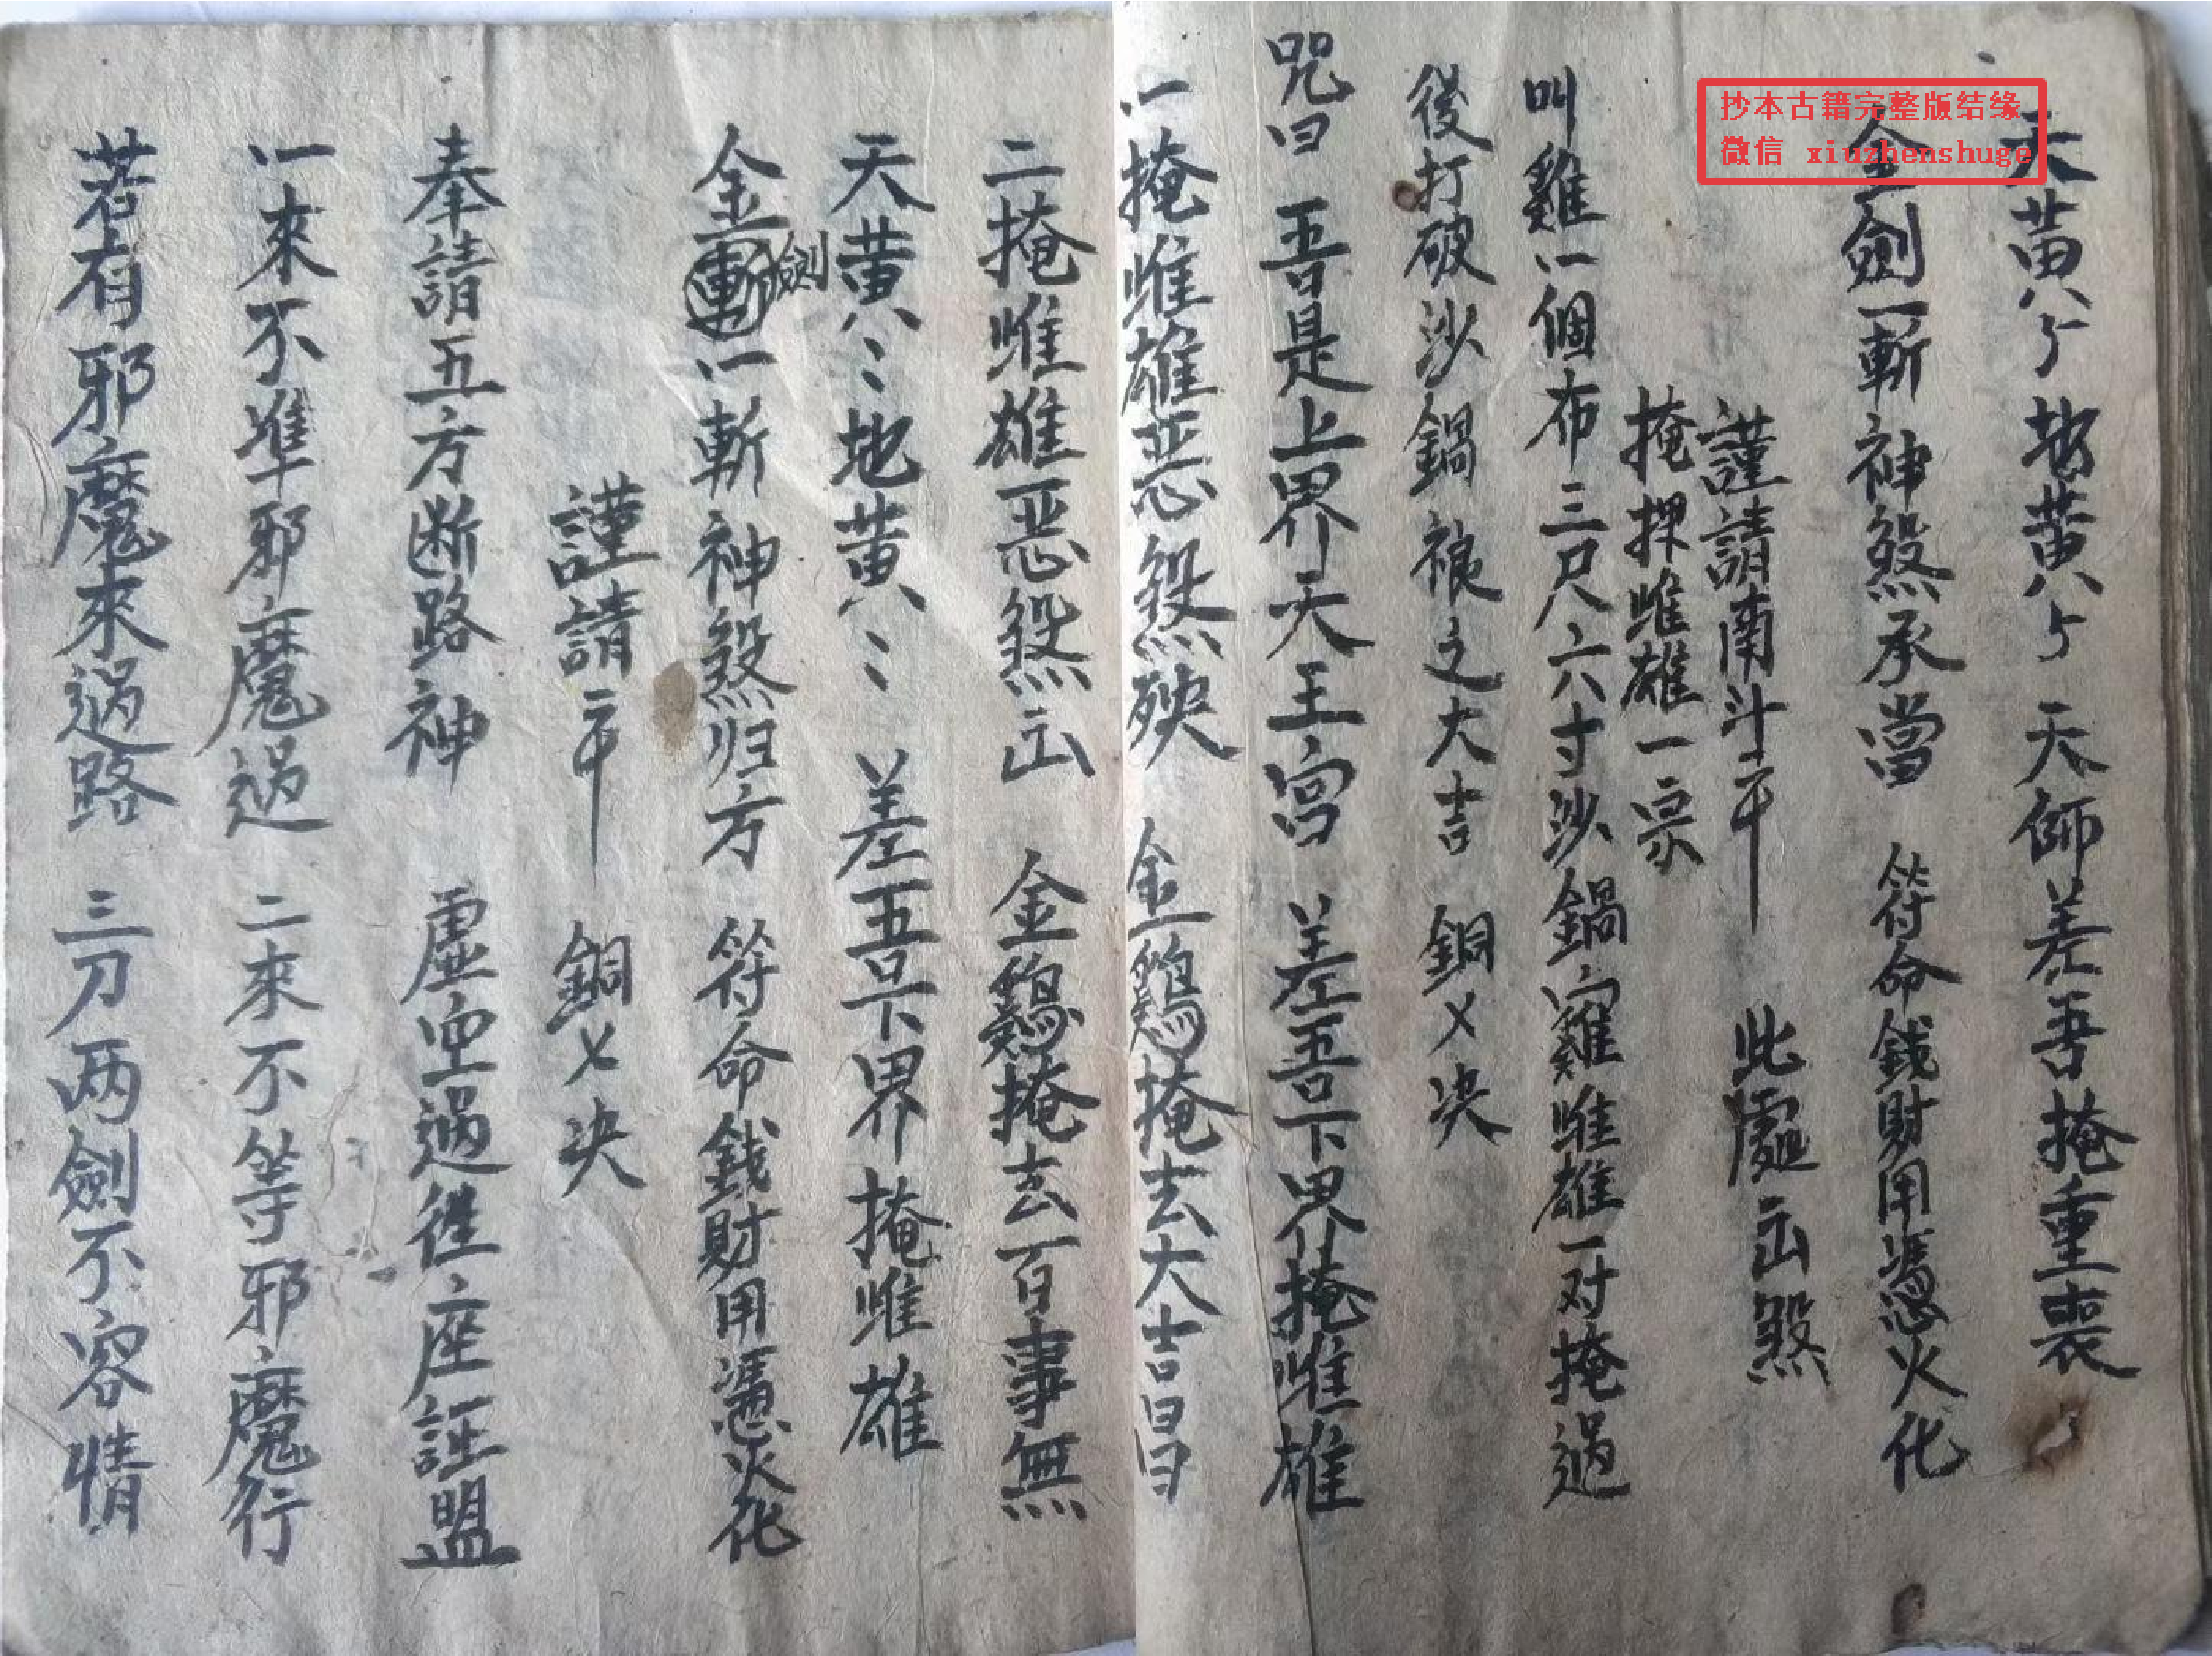 抄本古籍完整版结缘
微信 xiuzhenshuge
天黄々地黄々天師差吾掩重喪
金劍一斬神煞承當 符命錢財用憑火化
謹請南斗 此處出煞
掩 雌雄一宗
叫雞一個布三尺六寸沙鍋 雞雌雄一对掩過
後打破沙鍋 之大吉 銅乂决
咒曰 吾是上界天王宫 差吾下界掩雌雄
一掩雌雄恶煞殃 金鷄掩去大吉昌
二掩雌雄恶煞出 金鷄掩去百事無
天黄々地黄々 差吾下界掩雌雄
金劍一斬神煞归方 符命錢財用憑火化
謹請 銅乂决
奉請五方断路神 虚空過往座証盟
一來不準邪魔過 二來不等邪魔行
若有邪魔來過路 三刀两劍不容情